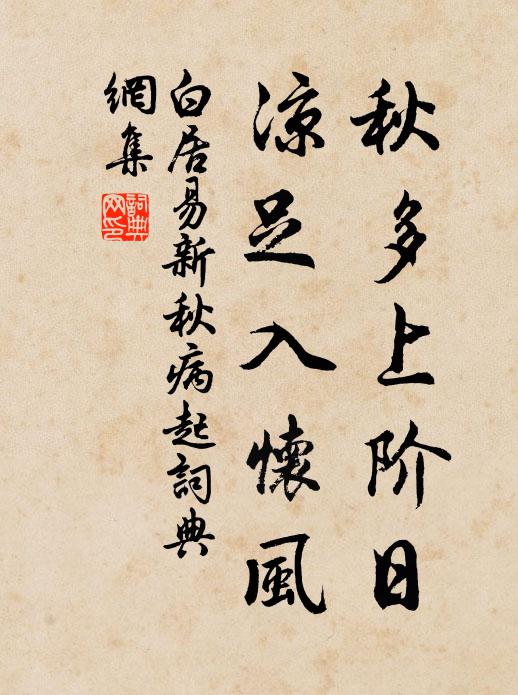 秋多上阶日
凉足入懷風
白居易新秋病起詞典
網集
詞典
网印